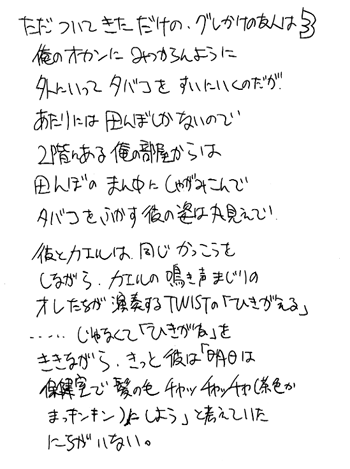 ただついてきただけの、グレかけの友人は
俺のオカンにみつからんように
外にいって タバコを すいにいくのだが
あたりには 田んぼしかないので
2階にある 俺の部屋からは
田んぼの まん中に しゃがみこんで
タバコをふかす 彼の姿は丸見えで
彼とカエルは、同じかっこうを
しながら、カエルの 鳴き声まじりの
オレたちが 演奏するTWISTの「ひきがえる」
‥‥‥ じゃなくて「ひきがね」を
ききながら、きっと 彼は「明日は
保健室で 髪の毛 チャッチャッチャと(茶色か
まっキンキン)にしよう」と考えていた
にちがいない。